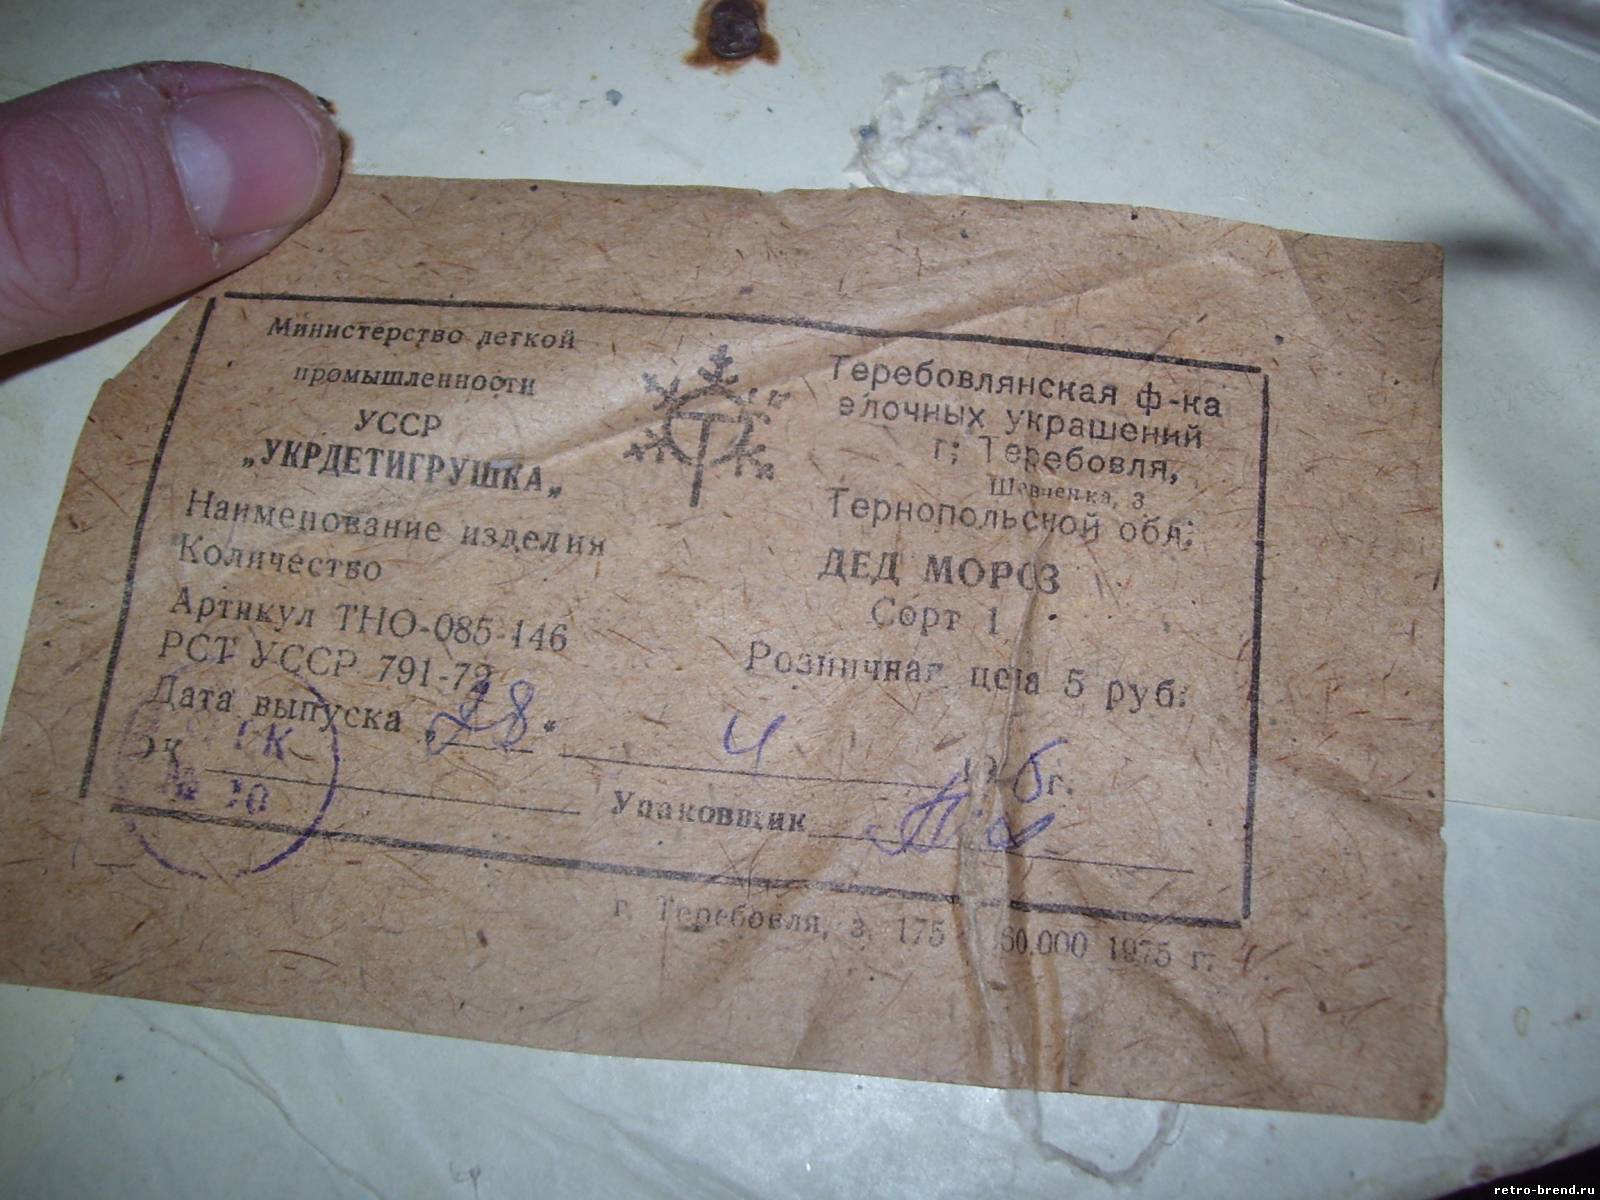 Министерство легкой
промышленности
УССР
„УКРДЕТИГРУШКА„
Т
Теребовлянская ф-ка
елочных украшений
г; Теребовля,
Шевченка, 3
Тернопольской обл;
Наименование изделия
ДЕД МОРОЗ
Количество
Сорт 1
Артикул ТНО-085-146
РСТ УССР 791-72
Розничная цена 5 руб.
Дата выпуска „28„ 4 6г.
№ 10
Упаковщик
г. Теребовля, з. 175 60.000 1975 г.
retro-brend.ru